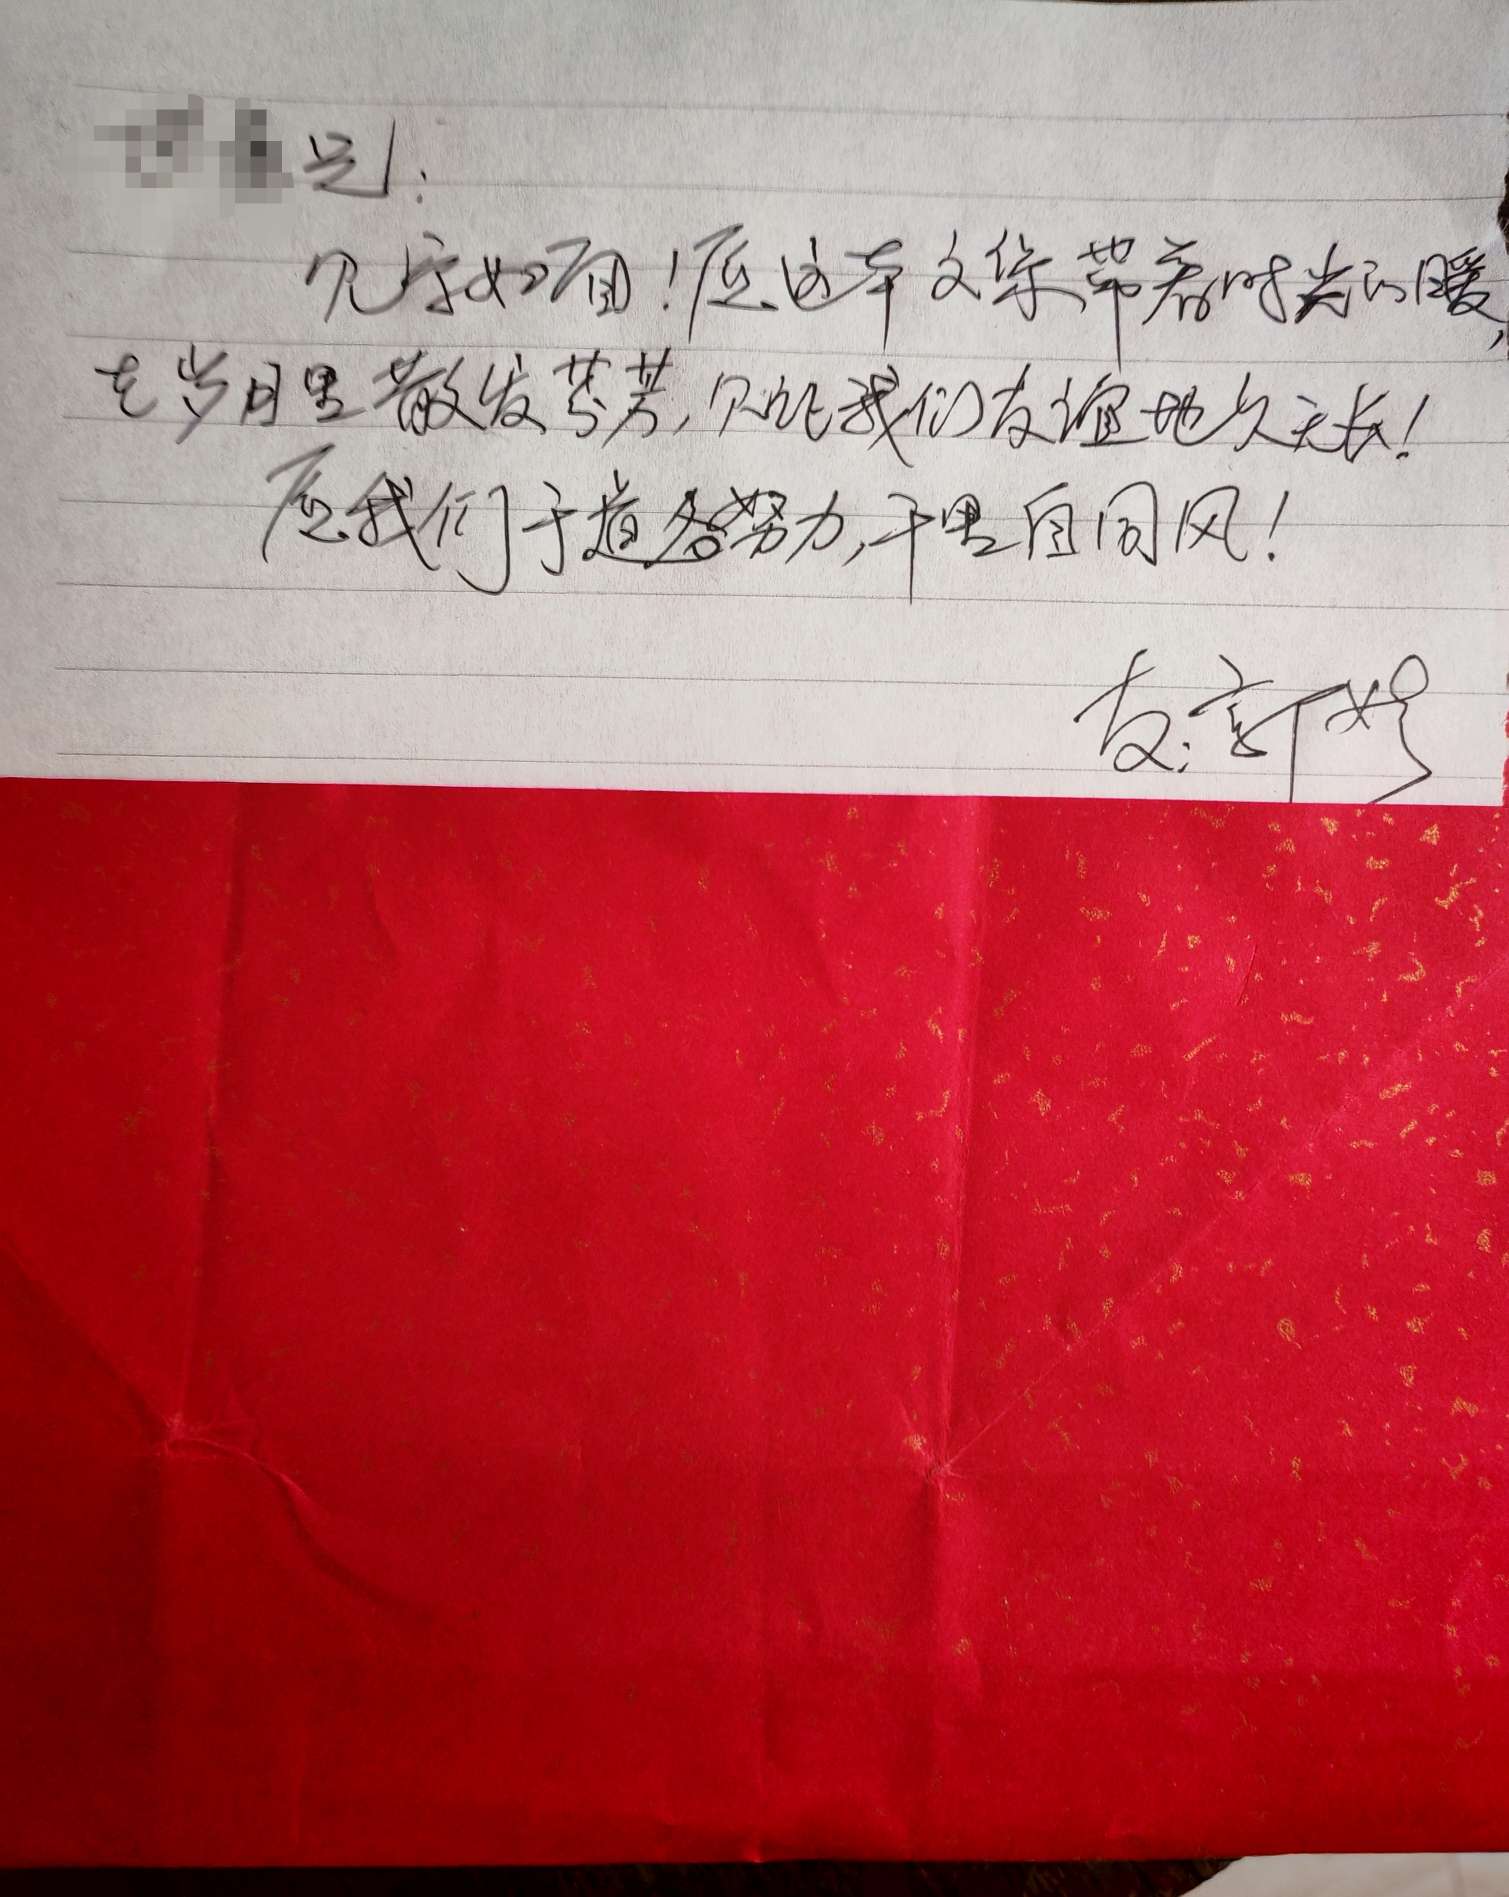 兄：
见字如面！愿这本文集带着时光的暖，
在岁月里散发芬芳，见证我们友谊地久天长！
愿我们于道各努力，千里自同风！
友：